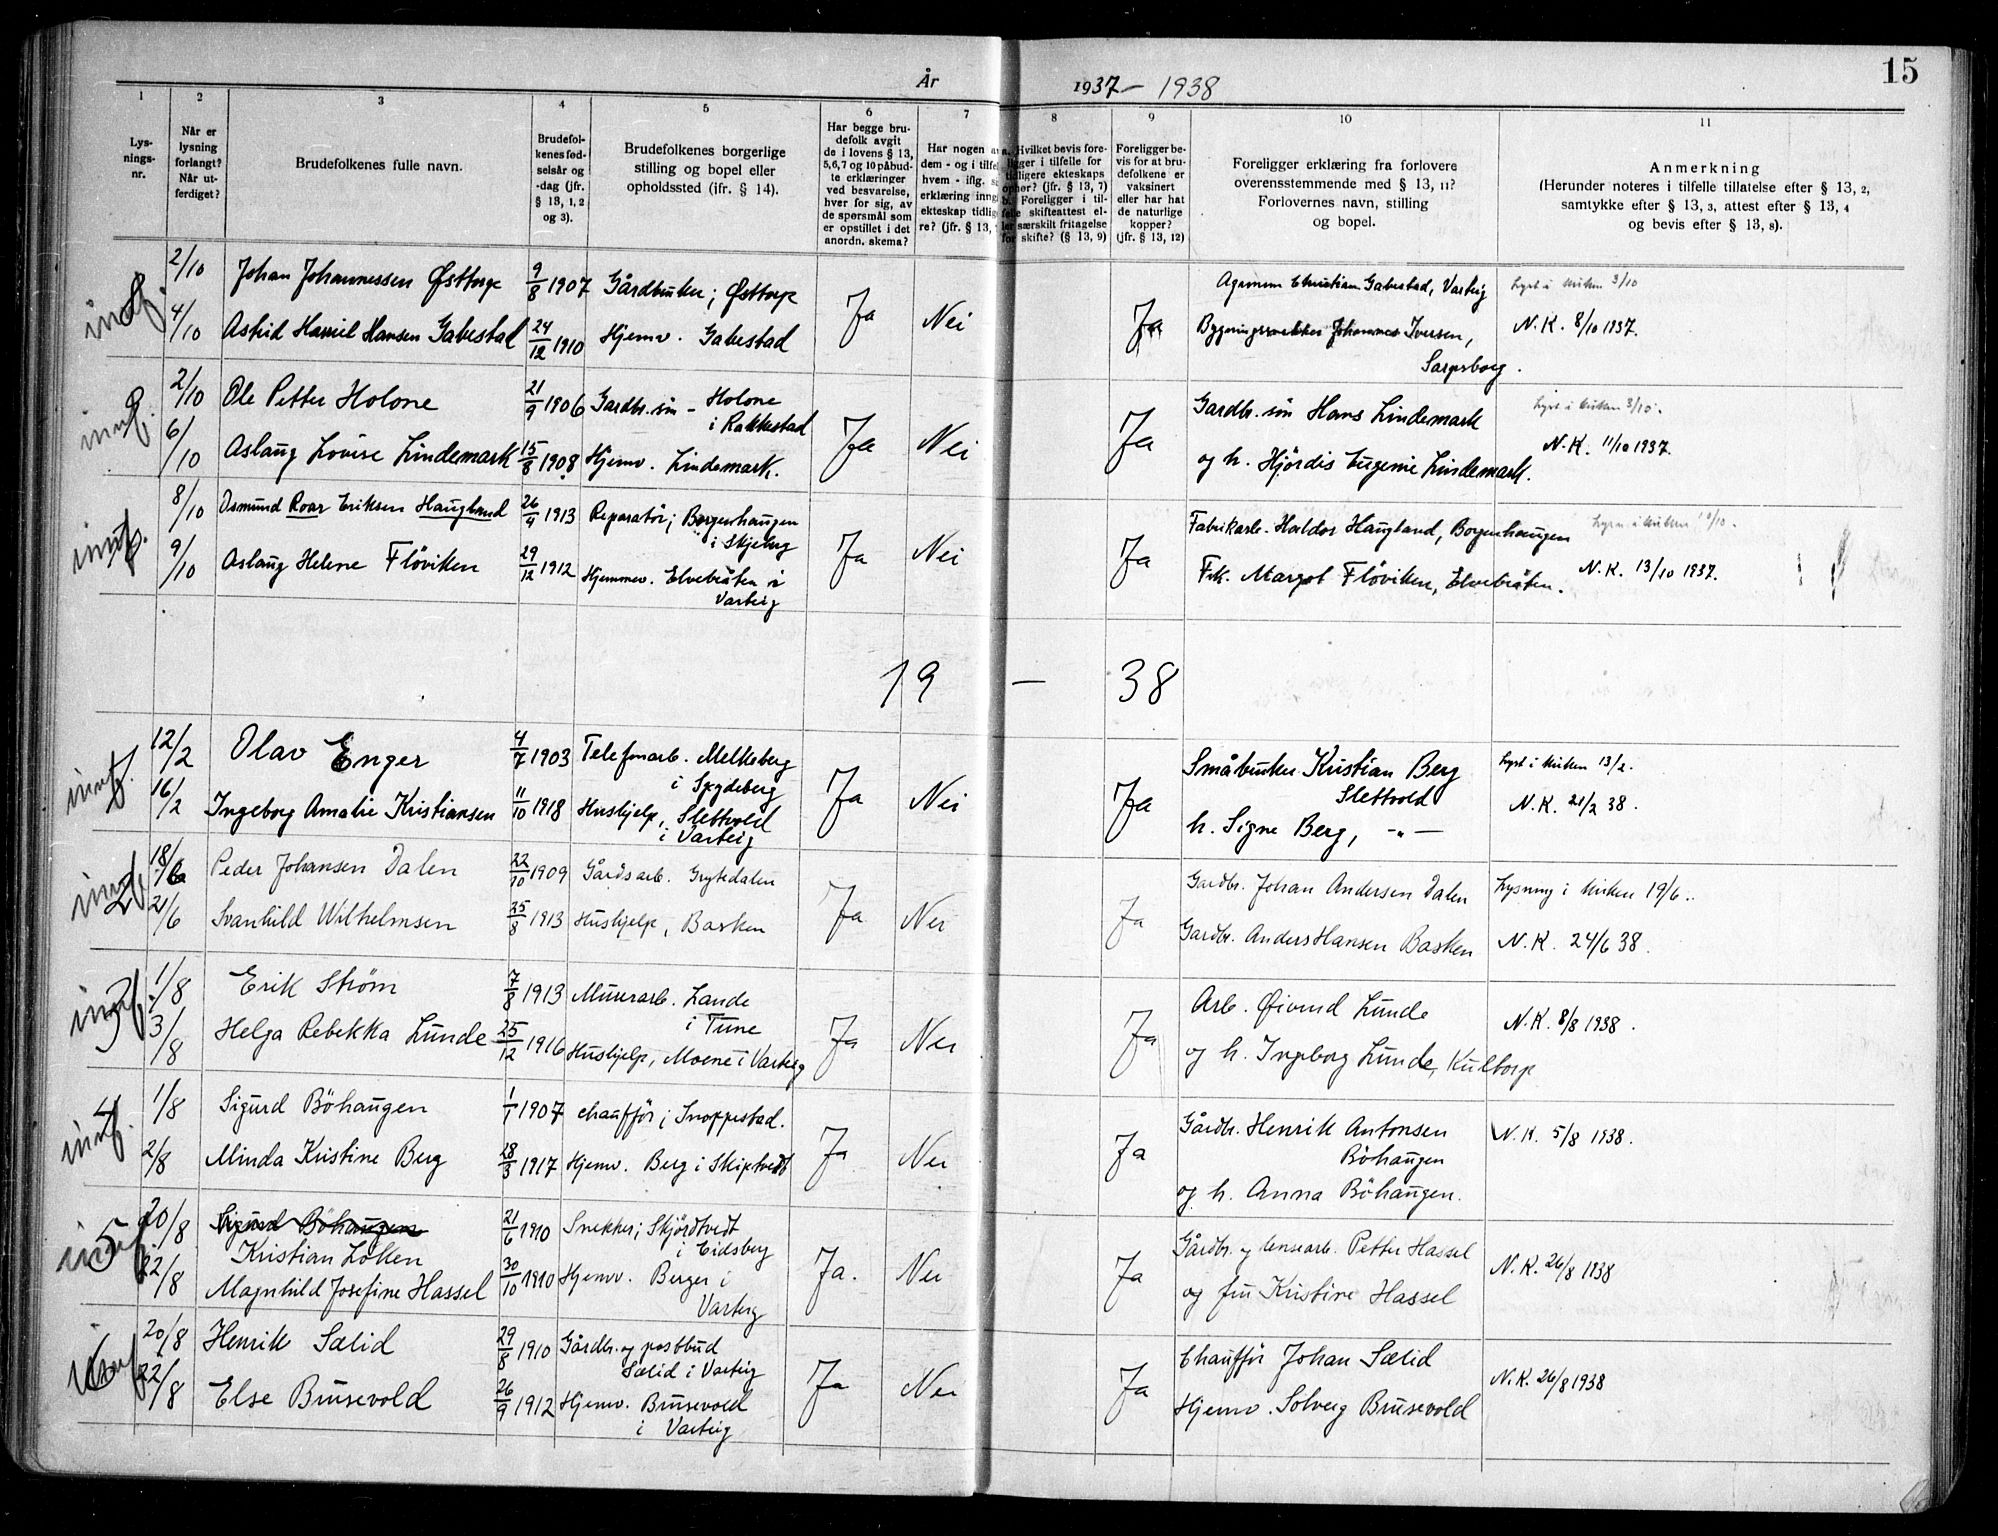 15
År 1937 – 1938
1 2 3 4 5 6 7 8 9 10 11
Lys-
nings-
nr.
Når er
lysning
forlangt?
Når ut-
ferdiget?
Brudefolkenes fulle navn.
Brudefol-
kenes fød-
selsår og
-dag (jfr.
§ 13, 1, 2
og 3).
Brudefolkenes borgerlige
stilling og bopel eller
opholdssted (ifr. § 14).
Har begge bru-
defolk avgit
de i lovens § 13,
5,6,7 og 10 påbud-
te erklæringer
ved besvarelse,
hver for sig, av
de spørsmål som
er opstillet i det
anordn. skema?
Har nogen av
dem - og i tilfel
hvem - iflg. si
erklæring inng
ekteskap tidlig
re? (jfr. § 13,
a. Hvilket bevis fore-
ligger i tilfelle for
tidligere ekteskaps
ophør? (jfr. § 13, 7)
b. Foreligger i til-
felle skifteattest el-
ler særskilt fritagelse
for skifte? (§ 13, 9)
Foreligger be-
vis for at bru-
defolkene er
vaksinert
eller har hat
de naturlige
kopper?
(jfr. § 13, 12)
Foreligger erklæring fra forlovere
overensstemmende med § 13, 11?
Forlovernes navn, stilling
og bopel.
Anmerkning
(Herunder noteres i tilfelle tillatelse efter § 13, 2,
samtykke efter § 13, 3, attest efter § 13, 4
og bevis efter § 13, 8).
2/10 Johan Johannessen Østtorp 9/8 1907 Gårdbruker; Østtorp Ja Nei Ja Agronom Christian Gabestad, Varteig Lyst i kirken 3/10
4/10 Astrid Hansen Gabestad 24/12 1910 Hjemv. Gabestad Johannes Iversen, N.K. 8/10 1937.
Sarpsborg.
2/10 Ole Petter Holone 21/9 1906 Gardbr. søn – Holone Gardbr. søn Hans Lindemark Lyst i kirken 3/10.
i Rakkestad Ja Nei Ja
6/10 Aslaug Lovise Lindemark 15/8 1908 Hjemv. Lindemark. og h. Hjördis Eugenie Lindemark. N.K. 11/10 1937.
8/10 Osmund Roar Eriksen Haugland 26/4 1913 Reparatör; Borgenhaugen Fabrikarb. Haldor Haugland, Borgenhaugen
i Skjeberg Ja Nei Ja
9/10 Aslaug Helene Flöviken 29/12 1912 Hjemmev. Elvebråten i Frk. Margot Flöviken, Elvebråten. N.K. 13/10 1937.
Varteig
19 – 38
12/2 Olav Enger 4/7 1903 Telefonarb. Melkeberg Småbruker Kristian Berg Lyst i kirken 13/2.
i Spydeberg Ja Nei Ja Slettvold
16/2 Ingeborg Amalie Kristiansen 11/10 1918 Hushjelp, Slettvold h. Signe Berg, -"- N.K. 21/2 38.
i Varteig
2 18/6 Peder Johansen Dalen 22/10 1909 Gårdsarb. Grytedalen Ja Nei Ja Gardbr. Johan Andersen Dalen Lysning i kirken 19/6.
21/6 Svanhild Wilhelmsen 25/8 1913 Hushjelp, Basken Gardbr. Anders Hansen Basken N.K. 24/6 38.
3 1/8 Erik Strøm 7/8 1913 Murerarb. Lande Arb. Øivind Lunde N.K. 8/8 1938.
i Tune Ja Nei Ja
3/8 Helga Rebekka Lunde 25/12 1916 Hushjelp, Moene i Varteig og h. Ingeborg Lunde, Kultorp
4 1/8 Sigurd Böhaugen 1/1 1907 chaufför; Snoppestad. Ja Nei Ja Gårdbr. Henrik Antonsen N.K. 5/8 1938.
Böhaugen
2/8 Minda Kristine Berg 28/3 1917 Hjemv. Berg i Skiptvedt og h. Anna Böhaugen.
5 20/8 Sigurd Böhaugen 21/6 1910 Snekker; Skjördtvedt Gårdbr. og lensearb. Petter Hassel
Kristian Lökken i Eidsberg Ja. Nei Ja N.K. 26/8 1938
22/8 Magnhild Josefine Hassel 30/10 1910 Hjemv. Berger i og fru Kristine Hassel
Varteig
6 20/8 Henrik Sælid 29/8 1910 Gårdbr. og postbud Chaufför Johan Sælid
Sælid i Varteig Ja Nei Ja N.K. 26/8 1938
22/8 Else Brusevold 26/9 1912 Hjemv. Brusevold Hjemv. Solveig Brusevold
i Varteig